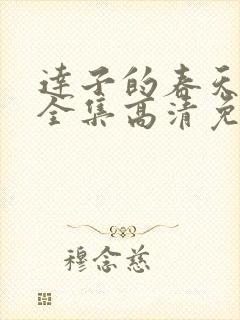 达子的春天
全集高清免
穆念慈